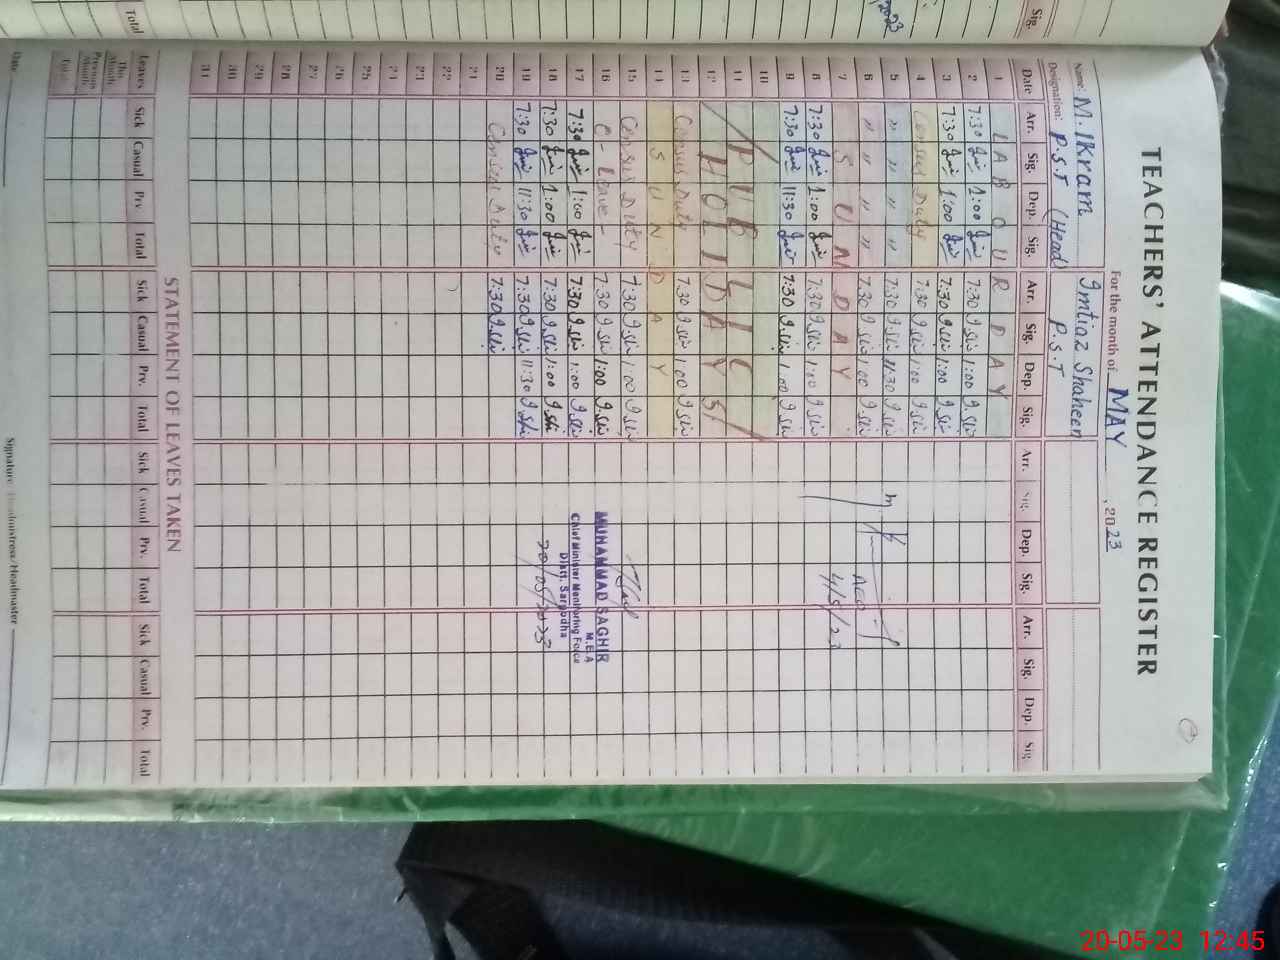 TEACHERS' ATTENDANCE REGISTER
For the month of MAY, 2023
Name: M. IKram Imtiaz Shaheen
Designation: P.S.T (Head) P.S.T
Date Arr. Sig. Dep. Sig. Arr. Sig. Dep. Sig. Arr. Sig. Dep. Sig. Arr. Sig. Dep. Sig.
1 LABOUR DAY
2 7:30 1:00 7:30 1:00
3 7:30 1:00 7:30 1:00
4 Census Duty 7:30 1:00
5 " " " " 7:30 11:30
6 " " " " 7:30 1:00
7 SUNDAY
8 7:30 1:00 7:30 1:00
9 7:30 11:30 7:30 1:00
10
11 PUBLIC
12 HOLIDAYS
13 Census Duty 7:30 1:00
14 SUNDAY
15 Census Duty 7:30 1:00
16 C-Leave- 7:30 1:00
17 7:30 1:00 7:30 1:00
18 7:30 1:00 7:30 1:00
19 7:30 11:30 7:30 11:30
20 Census Duty 7:30
21
22
23
24
25
26
27
28
29
30
31
AEO
4/5/23
MUHAMMAD SAGHIR
M.E.A
Chief Minister Monitoring Force
Distt. Sargodha
20/05/2023
STATEMENT OF LEAVES TAKEN
Leaves Sick Casual Prv. Total Sick Casual Prv. Total Sick Casual Prv. Total Sick Casual Prv. Total
This Month
Previous Month
Total
Date Signature Headmistress/Headmaster
Total
2023
Sig.
20-05-23 12:45